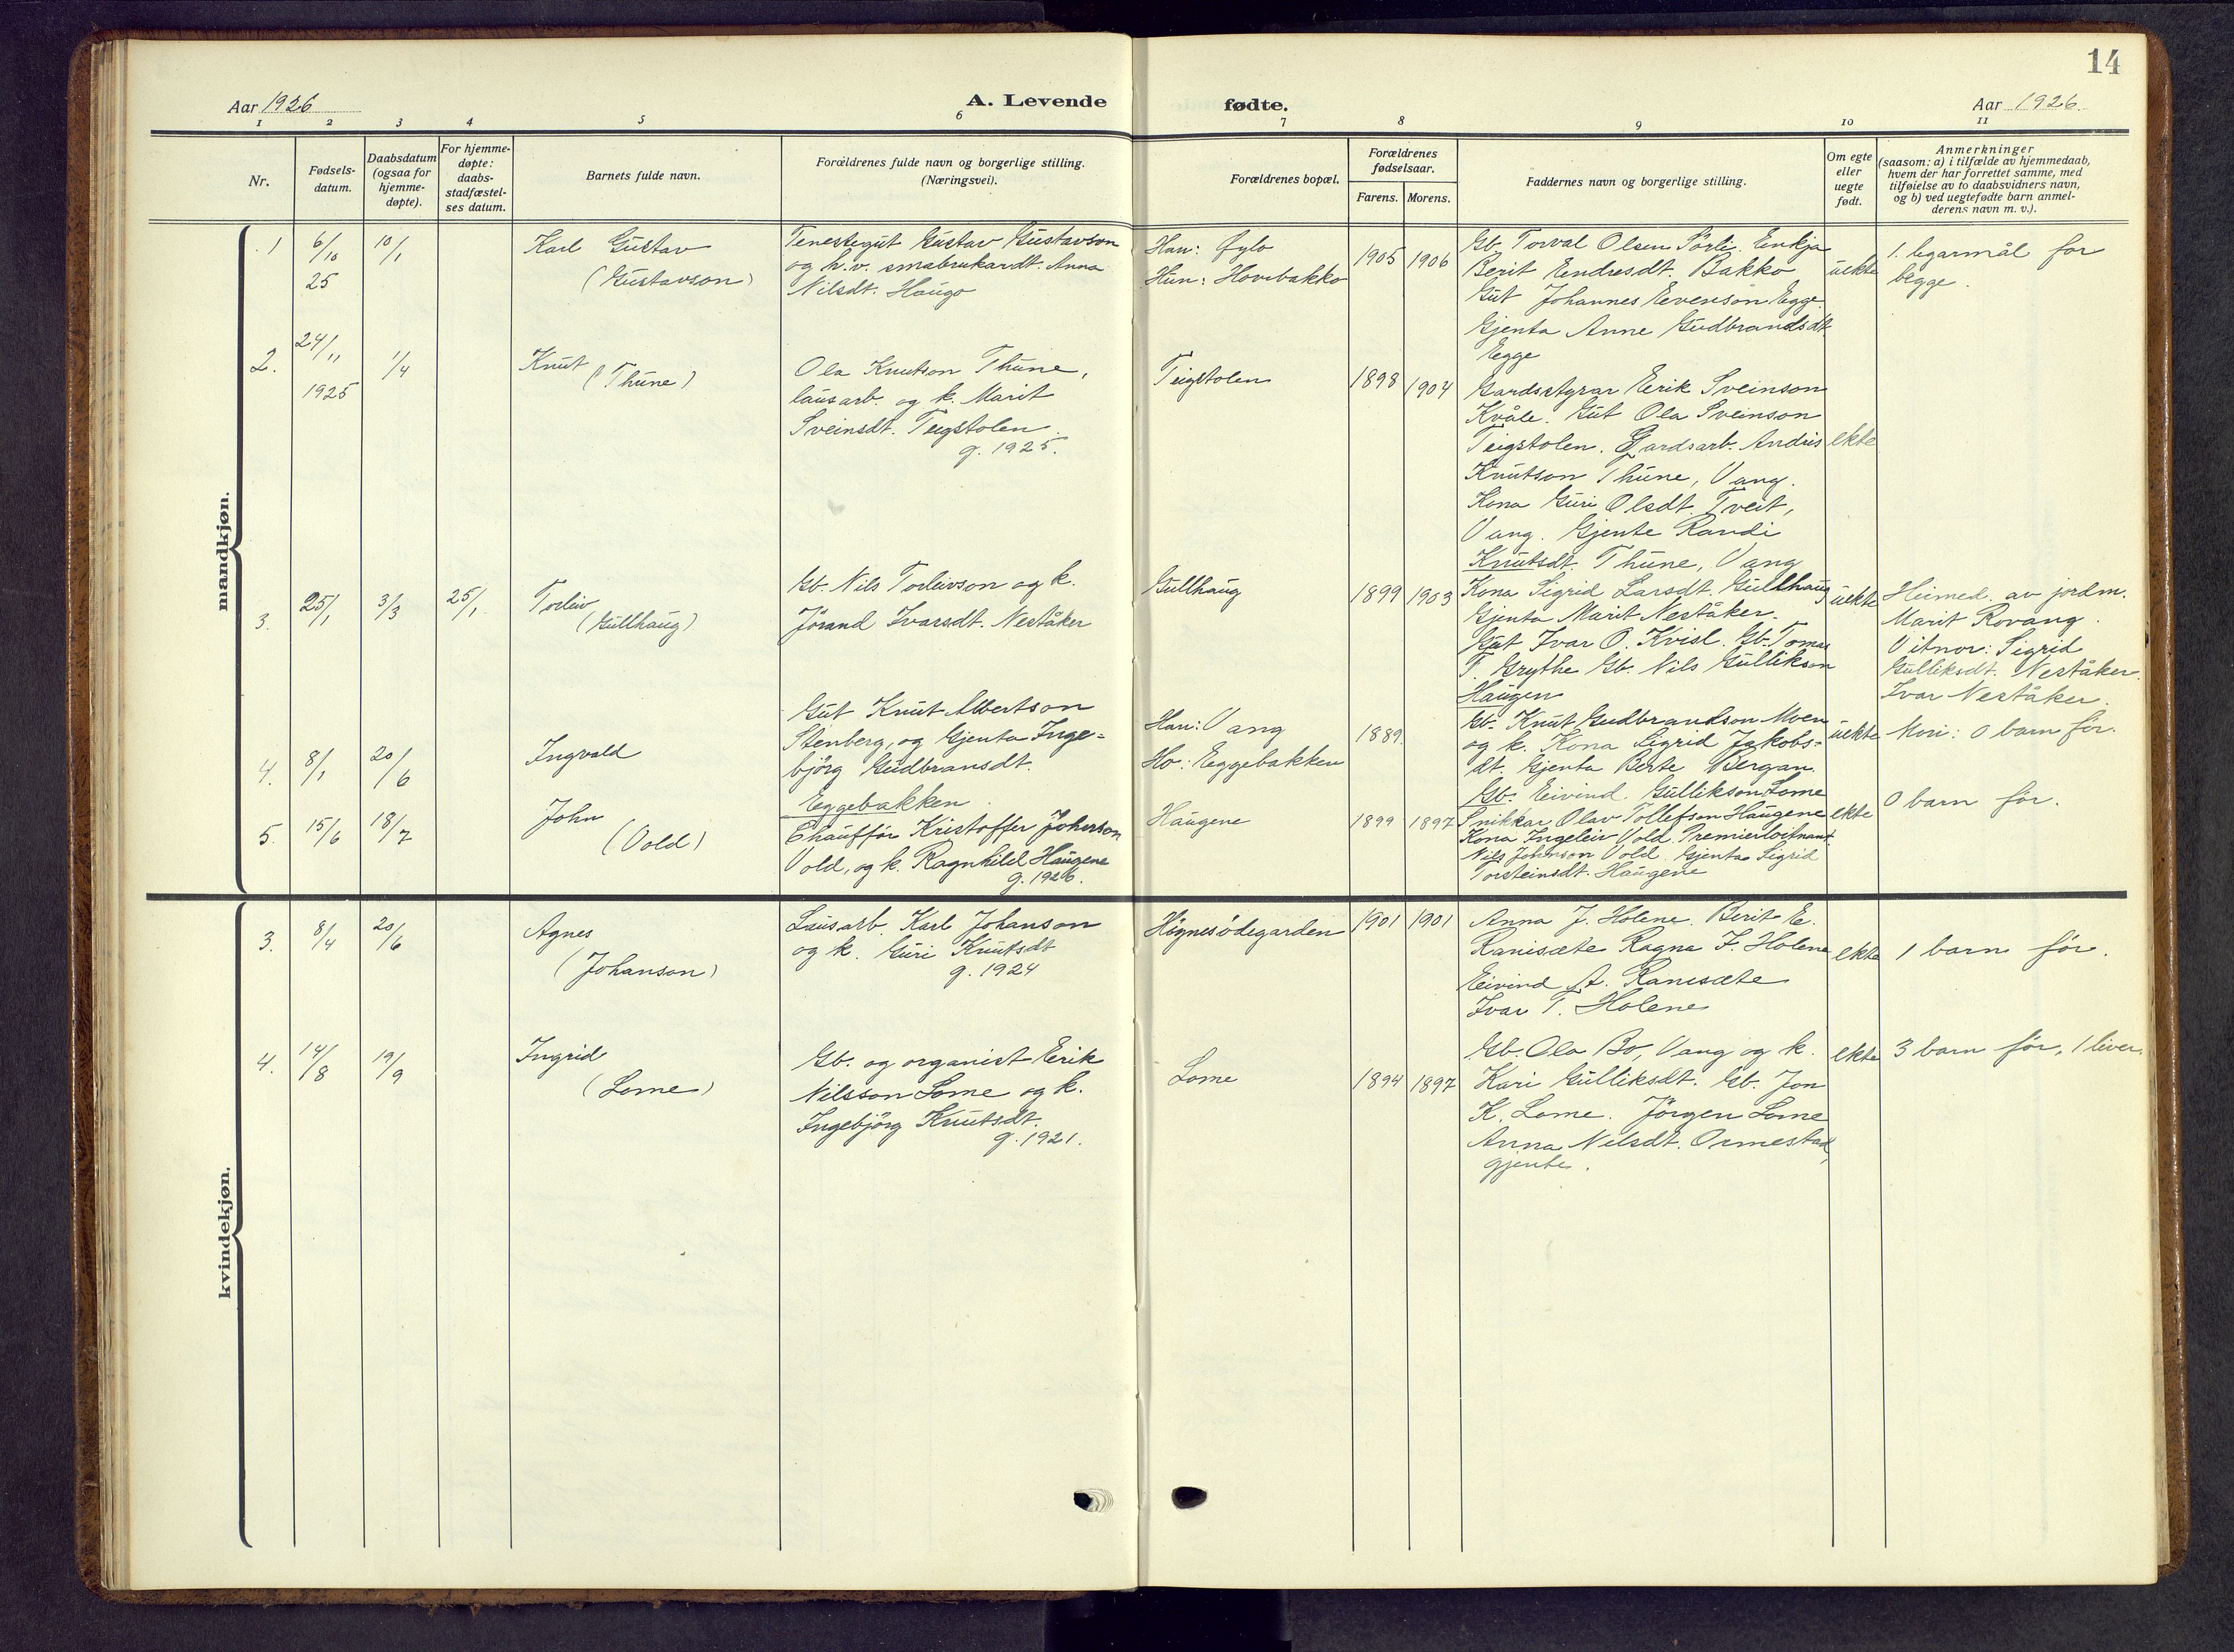 14
Aar 1926
A. Levende
fødte.
Aar 1926.
1 2 3 4 5 6 7 8 9 10 11
Nr.
Fødsels-
datum.
Daabsdatum
(ogsaa for
hjemme-
døpte).
For hjemme-
døpte:
daabs-
stadfæstel-
ses datum.
Barnets fulde navn.
Forældrenes fulde navn og borgerlige stilling.
(Næringsvei).
Forældrenes bopæl.
Forældrenes
fødselsaar.
Farens. Morens.
Faddernes navn og borgerlige stilling.
Om egte
eller
uegte
født.
Anmerkninger
(saasom: a) i tilfælde av hjemmedaab,
hvem der har forrettet samme, med
tilføielse av to daabsvidners navn,
og b) ved uegtefødte barn anmel-
derens navn m. v.).
mandkjøn.
1
6/10
25
10/1
Karl Gustav
(Gustavson)
Tenestegut Gustav Gustavson
og h.v. småbrukardt. Anna
Nilsdt. Haugo
Han: Øylo
Hun: Hovsbakko
1905 1906
Gb. Torval Olsen Sörli. Enkja
Berit Endresdt. Bakko
Gut Johannes Evenson Egge.
Gjenta Anne Gudbrandsdt.
Egge
uekte
1. legarmål for
begge.
2.
24/11
1925
1/4
Knut
(Thune)
Ola Knutson Thune,
lausarb. og k. Marit
Sveinsdt. Teigstolen.
g. 1925.
Teigstolen
1898 1904
Gardsstyrar Eirik Sveinson
Kvåle. Gut Ola Sveinson
Teigstolen. Gardsarb. Andris
Knutson Thune, Vang.
Kona Guri Olsdt. Tveit,
Vang. Gjente Randi
Knutsdt. Thune, Vang
ekte
3.
25/1
3/3
25/1
Torleiv
(Gullhaug)
Gb. Nils Torleivson og k.
Jörand Ivarsdt. Neståker
Gullhaug
1899 1903
Kona Sigrid Larsdt. Gullhaug
Gjenta Marit Neståker.
Gut Ivar O. Kvisl. Gb. Tomas
T. Grythe Gb. Nils Gullikson
Haugen
uekte
Heimed. av jordm.
Marit Rovang.
Vitnor: Sigrid
Gulliksdt. Neståker.
Ivar Neståker.
4.
8/1
20/6
Ingvald
Gut Knut Albertson
Stenberg, og Gjenta Inge-
björg Gudbransdt.
Eggebakken.
Han: Vang
Ho: Eggebakken
1889.
Gb. Knut Gudbrandson Moen
og k. Kona Sigrid Jakobs-
dt. Gjenta Berte Bergan.
Gb. Eivind Gullikson Lome
uekte
Mori: 0 barn för.
5.
15/6
18/7
John
(Vold)
Chaufför Kristoffer Johnson
Vold, og k. Ragnhild Haugene
g. 1926.
Haugene
1899 1897
Snikkar Olav Tollefson Haugene
Kona Ingeleiv Vold. Premierlöitnant
Nils Johnson Vold. Gjenta Sigrid
Torsteinsdt. Haugene
ekte
0 barn för.
kvindekjøn.
3.
8/4
20/6
Agnes
(Johanson)
Lausarb. Karl Johanson
og k. Guri Knutsdt
g. 1924
Högnesödegarden
1901 1901
Anna J. Holene. Berit E.
Ranisæte Ragna I. Holene
Eivind A. Ranisæte
Ivar T. Holene
ekte
1 barn för.
4.
14/8
19/9
Ingrid
(Lome)
Gb. og organist Eirik
Nilsson Lome og k.
Ingebjörg Knutsdt.
g. 1921.
Lome
1894 1897
Gb. Ola Bo, Vang og k.
Kari Gulliksdt. Gb. Jon
K. Lome. Jörgen Lome
Anna Nilsdt. Ormestad,
gjente.
ekte
3 barn för, 1 liver.